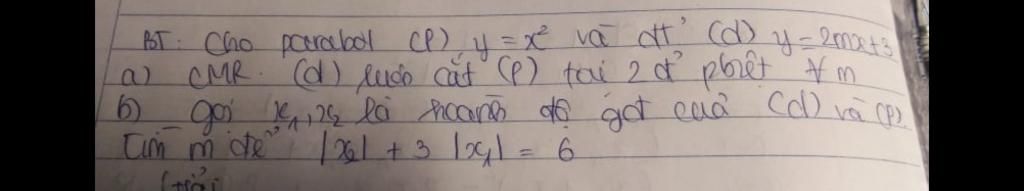 BT: Cho parabol (P) y = x² và đt' (d) y = 2mx+3
a) CMR. (d) luôn cắt (P) tại 2 đ' pbiệt ∀ m
b) gọi x₁, x₂ là hoành độ gđ của (d) và (P).
Tìm m để |x₂| + 3 |x₁| = 6
Giải